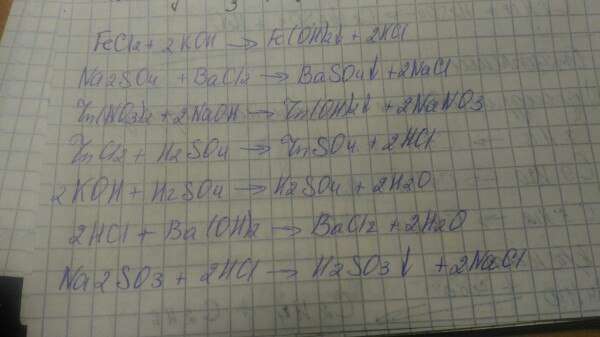 FeCl2 + 2KOH → Fe(OH)2↓ + 2HCl
Na2SO4 + BaCl2 → BaSO4↓ + 2NaCl
Zn(NO3)2 + 2NaOH → Zn(OH)2↓ + 2NaNO3
ZnCl2 + H2SO4 → ZnSO4 + 2HCl
2KOH + H2SO4 → H2SO4 + 2H2O
2HCl + Ba(OH)2 → BaCl2 + 2H2O
Na2SO3 + 2HCl → H2SO3↓ + 2NaCl